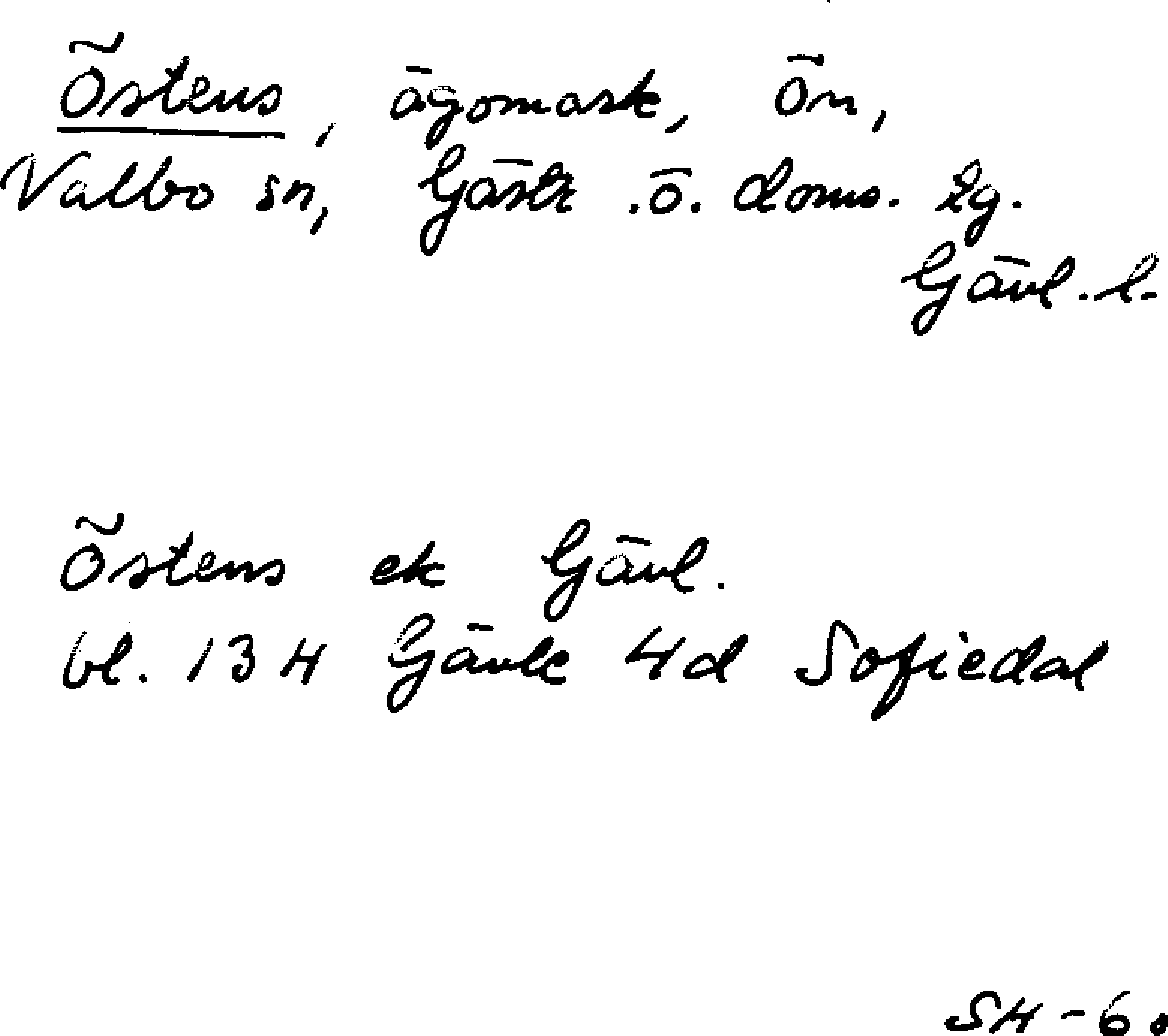 Östens, ägomark, Ön,
Valbo sn, Gästr. ö. doms. tg.
Gävl. l.
Östens ek Gävl.
bl. 134 Gävle 4d Sofiedal
SH-60